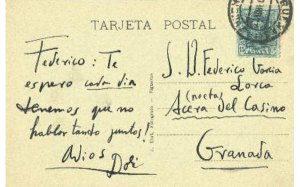 TARJETA POSTAL
Federico: Te
espero cada dia
tenemos que no
hablar tando juntos!
Adios Dalí
S. D. Federico Garcia
Lorca
(poeta)
Acera del Casino
Granada